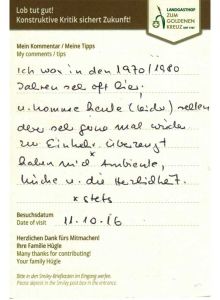 Lob tut gut!
Konstruktive Kritik sichert Zukunft!
LANDGASTHOF
ZUM
GOLDENEN
KREUZ
Mein Kommentar / Meine Tipps
My comments / tips
Ich war in den 1970/1980
Jahren sehr oft hier,
u. komme heute (leider) selten
aber sehr gerne mal wieder
zur Einkehr. Überzeugt
haben mich * Ambiente,
Küche u. die Herzlichkeit.
* stets
Besuchsdatum
Date of visit
11.10.16
Herzlichen Dank fürs Mitmachen!
Ihre Familie Hügle
Many thanks for contributing!
Your family Hügle
Bitte in den Smiley-Briefkasten im Eingang werfen.
Please deposit in the Smiley post box in the entrance